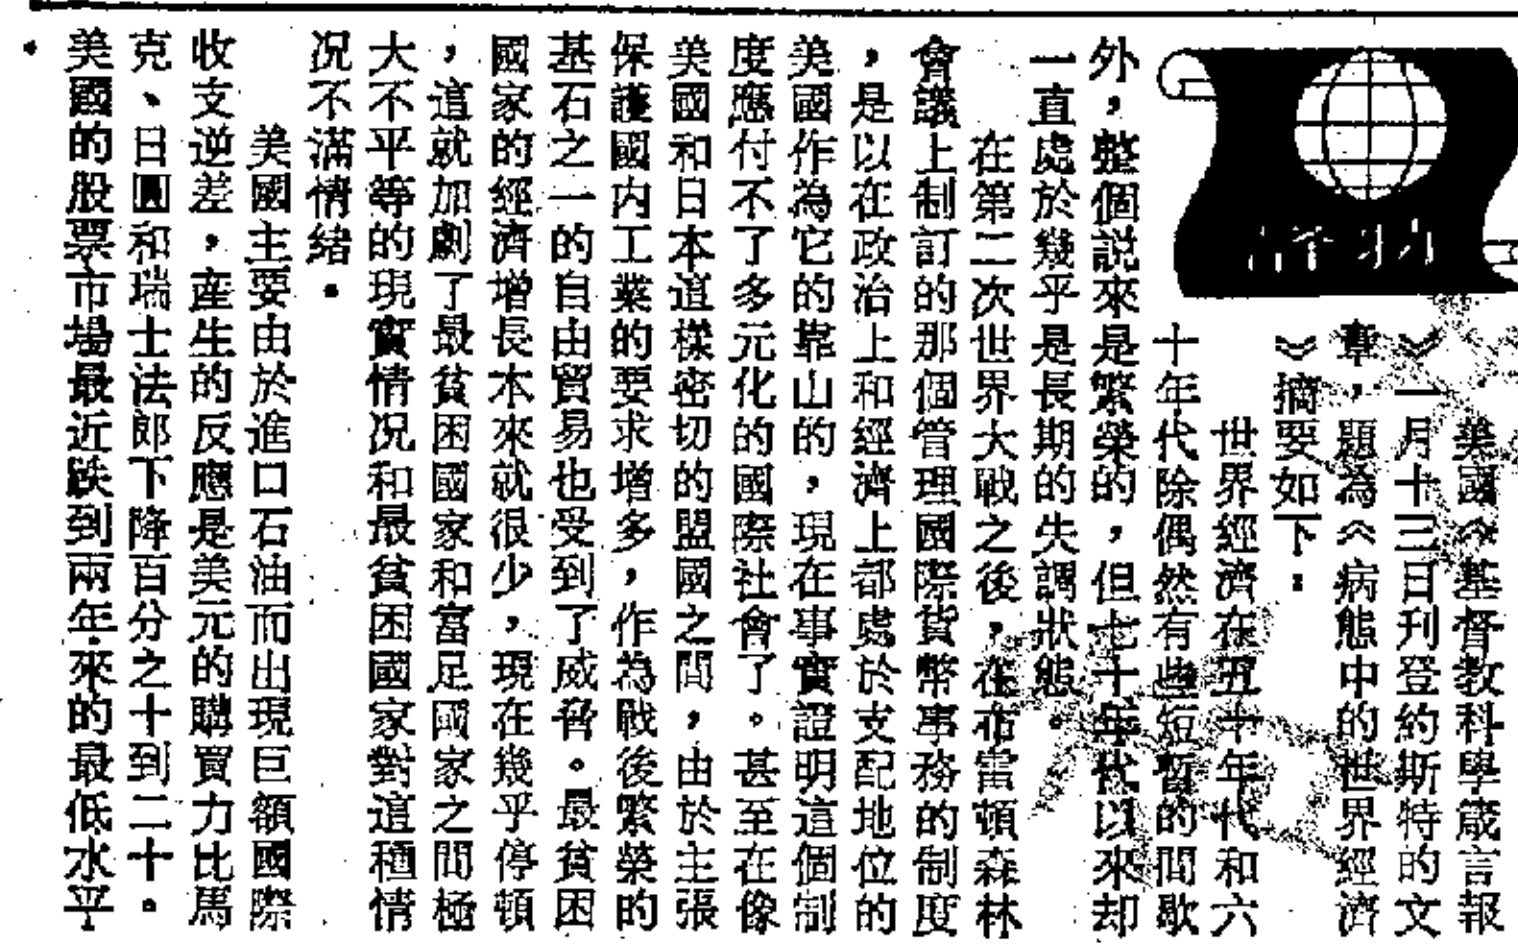 美國《基督教科學箴言報
》一月十三日刊登約斯特的文
章，題為《病態中的世界經濟
》摘要如下：
世界經濟在五十年代和六
十年代除偶然有些短暫的間歇
外，整個説來是繁榮的，但七十年代以來却
一直處於幾乎是長期的失調狀態。
在第二次世界大戰之後，在布雷頓森林
會議上制訂的那個管理國際貨幣事務的制度
，是以在政治上和經濟上都處於支配地位的
美國作為它的靠山的，現在事實證明這個制
度應付不了多元化的國際社會了。甚至在像
美國和日本這樣密切的盟國之間，由於主張
保護國内工業的要求增多，作為戰後繁榮的
基石之一的自由貿易也受到了威脅。最貧困
國家的經濟增長本來就很少，現在幾乎停頓
，這就加劇了最貧困國家和富足國家之間極
大不平等的現實情况和最貧困國家對這種情
况不滿情緒。
美國主要由於進口石油而出現巨額國際
收支逆差，產生的反應是美元的購買力比馬
克、日圓和瑞士法郎下降百分之十到二十。
美國的股票市場最近跌到兩年來的最低水平
。